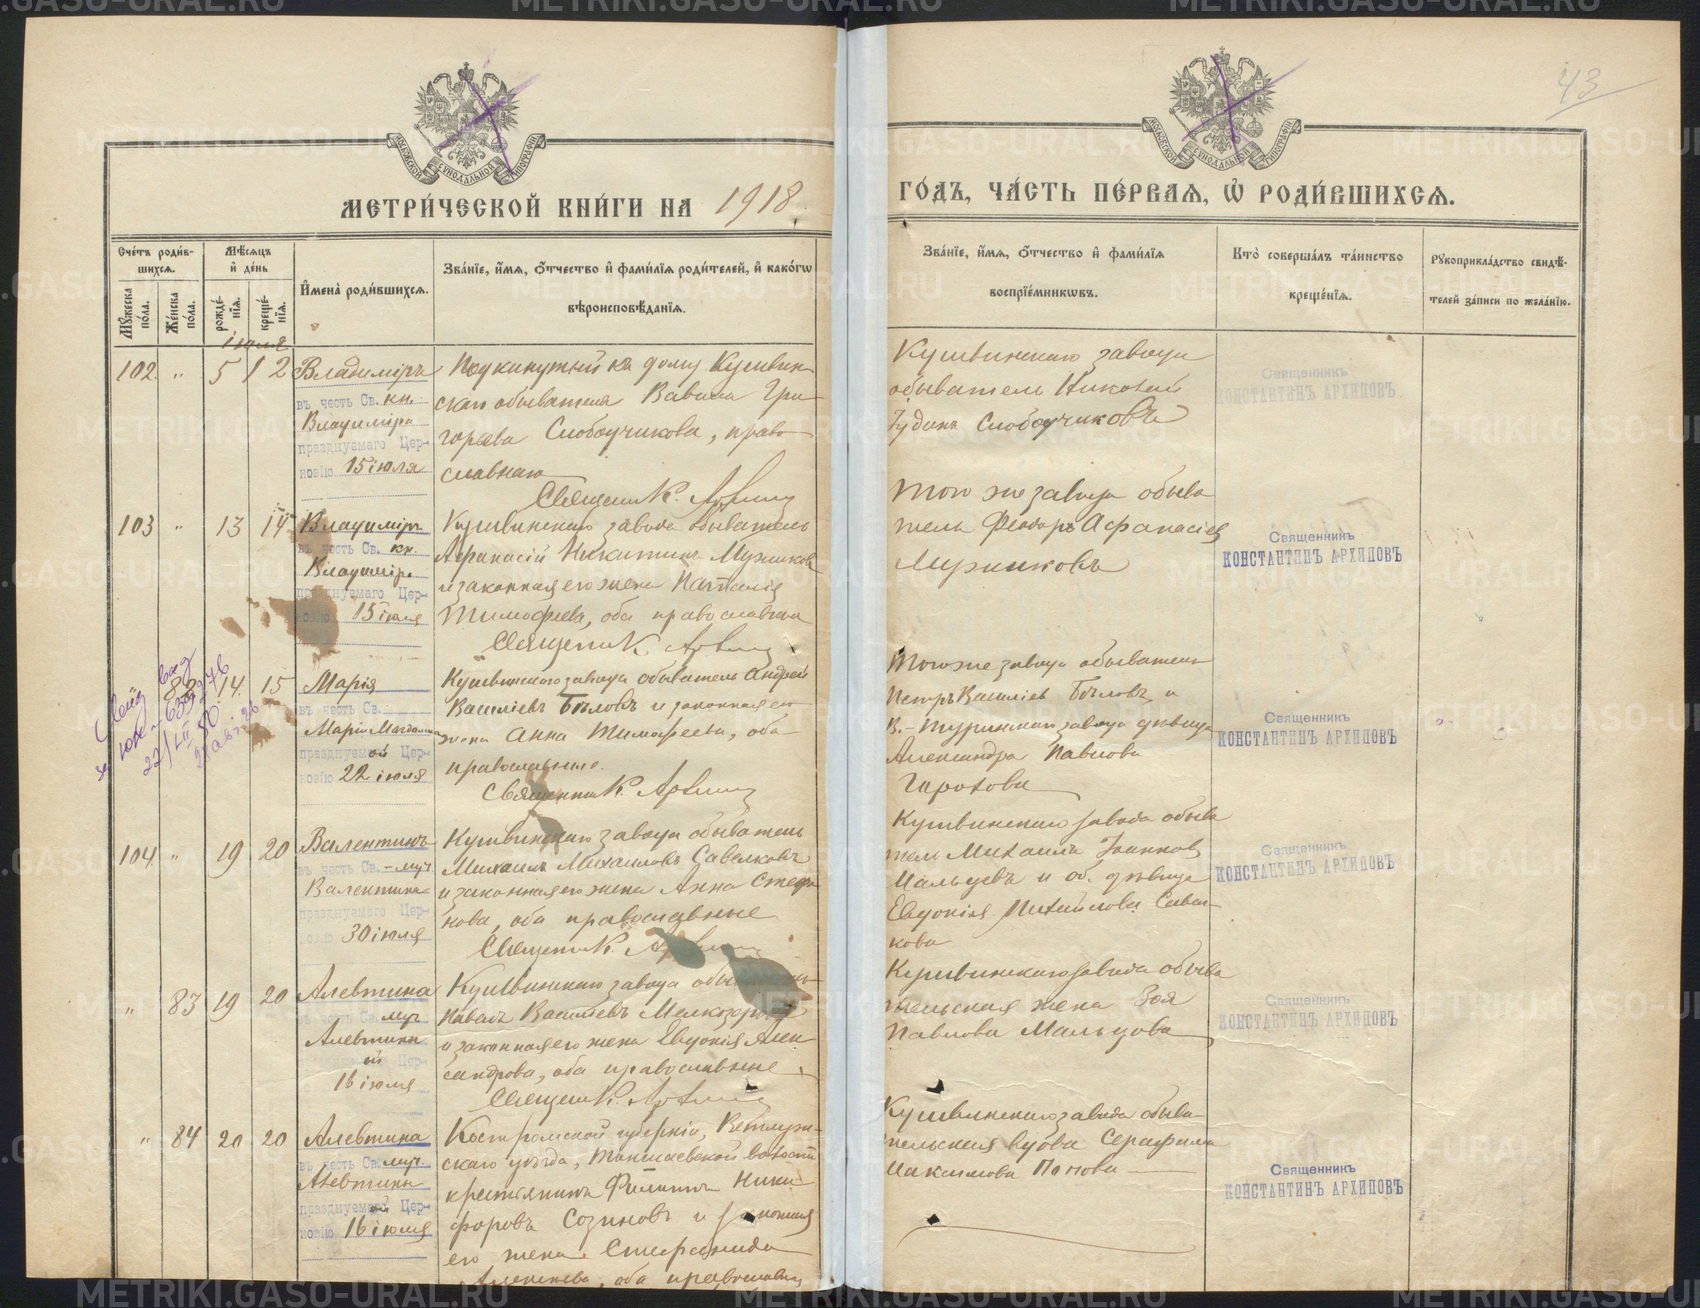 43
МОСКОВСКОЙ СѴНОДАЛЬНОЙ ТИПОГРАФІИ
МЕТРИ́ЧЕСКОЙ КНИ́ГИ НА 1918
ГО́ДЪ, ЧА́СТЬ ПЕ́РВАЯ, Ѡ҆ РОДИ́ВШИХСЯ.
Сче́тъ роди́в-
шихся.
Мꙋ́жеска по́ла.
Же́нска по́ла.
Мѣ́сяцъ
и҆ де́нь
рожде́-
нїя.
креще́-
нїя.
И҆мена̀ роди́вшихся.
Зва́нїе, и҆́мя, ѻ҆́тчество и҆ фами́лїя роди́телей, и҆ како́гѡ
вѣроисповѣ́данїя.
Зва́нїе, и҆́мя, ѻ҆́тчество и҆ фами́лїя
воспрїе́мникѡвъ.
Кто̀ соверша́лъ та́инство
креще́нїя.
Рꙋкоприкла́дство свидѣ́-
телей за́писи по жела́нїю.
іюля
102 " 5 12
Владиміръ
въ честь Св. кн.
Владиміра
празднуемаго Цер-
ковію 15 іюля
Подкинутый къ дому Кушвин-
скаго обывателя Вавила Гри-
горьева Слободчикова, право-
славнаго
Священник К. Архипов
Кушвинскаго завода
обыватель Николай
Іудинъ Слободчиковъ
Священникъ
КОНСТАНТИНЪ АРХИПОВЪ
103 " 13 14
Владиміръ
въ честь Св. кн.
Владиміра
празднуемаго Цер-
ковію 15 іюля
Кушвинскаго завода обыватель
Афанасій Никитинъ
и законная его жена Наталія
Тимофеева, оба православные
Священник К. Архипов
Того же завода обыва-
тель Феодоръ Афанасіев
Священникъ
КОНСТАНТИНЪ АРХИПОВЪ
82 14 15
Марія
въ честь Св.
Маріи Магдалины
празднуемой Цер-
ковію 22 іюля
Кушвинскаго завода обыватель Андрей
Василіевъ Бѣловъ и законная его
жена Анна Тимофеева, оба
православные.
Священник К. Архипов
Того же завода обыватель
Петръ Василіев Бѣловъ и
В.-Туринскаго завода дѣвица
Александра Павлова
Горохова
Священникъ
КОНСТАНТИНЪ АРХИПОВЪ
104 " 19 20
Валентинъ
въ честь Св. муч
Валентина
празднуемаго Цер-
ковію 30 іюля
Кушвинскаго завода обыватель
Михаилъ Михаиловъ Савелковъ
и законная его жена Анна Стефа-
нова, оба православные
Священник К. Архипов
Кушвинскаго завода обыва-
тель Михаилъ Іоаннов
Мальцевъ и об. дѣвица
Евдокія Михайлова Савел-
кова
Священникъ
КОНСТАНТИНЪ АРХИПОВЪ
" 83 19 20
Алевтина
въ честь Св. муч
Алевтины
ой Цер-
16 іюля
Кушвинскаго завода обыватель
Павелъ Василіевъ
и законная его жена Евдокія Алек-
сандрова, оба православные
Священник К. Архипов
Кушвинскаго завода обыва-
тельская жена Зоя
Павлова Мальцова
Священникъ
КОНСТАНТИНЪ АРХИПОВЪ
" 84 20 20
Алевтина
въ честь Св. муч
Алевтины
празднуемой Цер-
ковію 16 іюля
Костромской губерніи, Ветлуж-
скаго уѣзда, Тоншаевской волости
крестьянинъ Филиппъ Ники-
форовъ Созиновъ и законная
его жена Стефанида
Алексеева, оба православные
Кушвинскаго завода обыва-
тельская вдова Серафима
Максимова Попова
Священникъ
КОНСТАНТИНЪ АРХИПОВЪ
METRIKI.GASO-URAL.RU